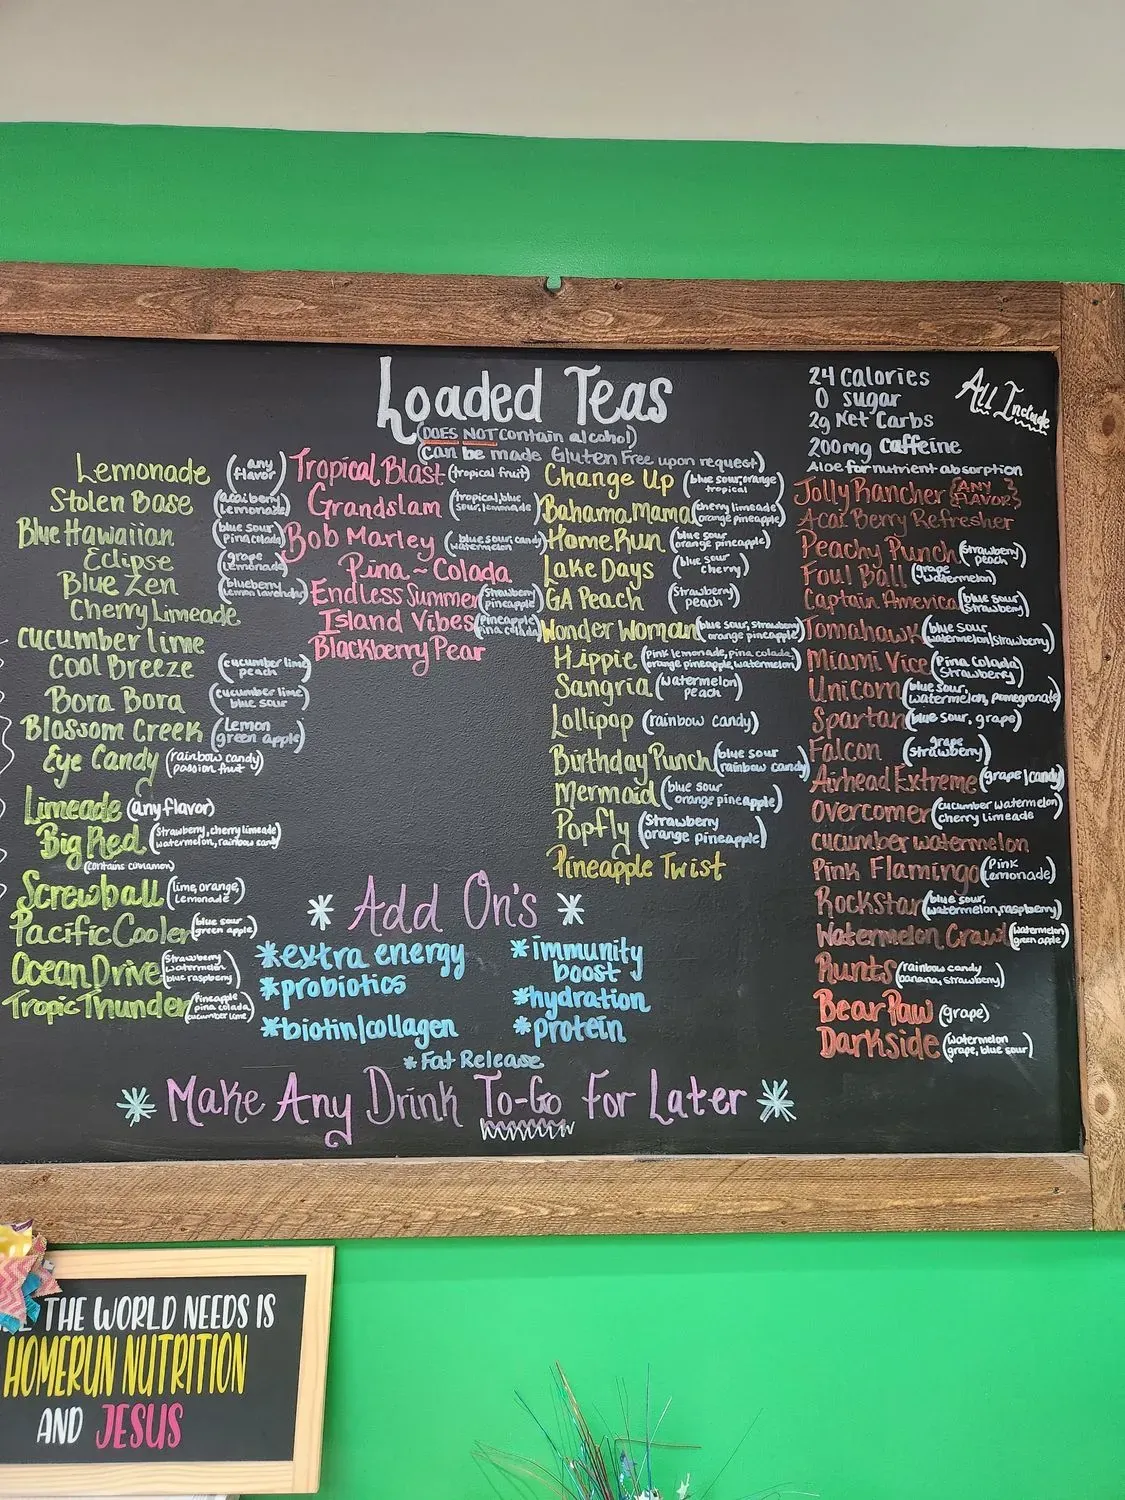 Loaded Teas
(DOES NOT contain alcohol)
(can be made Gluten Free upon request)
24 Calories
0 sugar
2g Net Carbs
200mg caffeine
Aloe for nutrient absorption
All Include
Lemonade (any flavor)
Stolen Base (acai berry Lemonade)
Blue Hawaiian (blue sour Pina colada)
Eclipse (grape Lemonade)
Blue Zen (blueberry Lemon lavender)
Cherry Limeade
cucumber lime
Cool Breeze (cucumber lime peach)
Bora Bora (cucumber lime blue sour)
Blossom Creek (Lemon green apple)
Eye Candy (rainbow candy passion fruit)
Limeade (any flavor)
Big Red (Strawberry, cherry limeade watermelon, rainbow candy)
(contains cinnamon)
Screwball (lime, orange, Lemonade)
Pacific Cooler (blue sour green apple)
Ocean Drive (Strawberry watermelon blue raspberry)
Tropic Thunder (Pineapple pina colada cucumber lime)
Tropical Blast (tropical fruit)
Grandslam (tropical, blue sour, lemonade)
Bob Marley (blue sour, candy watermelon)
Pina~Colada
Endless Summer (Strawberry pineapple)
Island Vibes (Pineapple Pina colada)
Blackberry Pear
Change Up (blue sour, orange tropical)
Bahama Mama (cherry limeade orange pineapple)
HomeRun (blue sour orange pineapple)
Lake Days (blue sour cherry)
GA Peach (Strawberry peach)
Wonder Woman (blue sour, strawberry orange pineapple)
Hippie (pink lemonade, pina colada, orange pineapple, watermelon)
Sangria (watermelon peach)
Lollipop (rainbow candy)
Birthday Punch (blue sour rainbow candy)
Mermaid (blue sour orange pineapple)
Popfly (Strawberry orange pineapple)
Pineapple Twist
Jolly Rancher {ANY FLAVOR}
Acai Berry Refresher
Peachy Punch (Strawberry peach)
Foul Ball (grape watermelon)
Captain America (blue sour strawberry)
Tomahawk (blue sour, watermelon/strawberry)
Miami Vice (Pina Colada Strawberry)
Unicorn (blue sour, watermelon, pomegranate)
Spartan (blue sour, grape)
Falcon (grape strawberry)
Airhead Extreme (grape/candy)
Overcomer (cucumber watermelon cherry limeade)
cucumber watermelon
Pink Flamingo (Pink Lemonade)
Rockstar (blue sour, watermelon, raspberry)
Watermelon Crawl (watermelon green apple)
Runts (rainbow candy banana, strawberry)
Bear Paw (grape)
Darkside (Watermelon grape, blue sour)
* Add On's *
*extra energy
*probiotics
*biotin/collagen
*immunity boost
*hydration
*protein
*Fat Release
* Make Any Drink To-Go For Later *
THE WORLD NEEDS IS
HOMERUN NUTRITION
AND JESUS